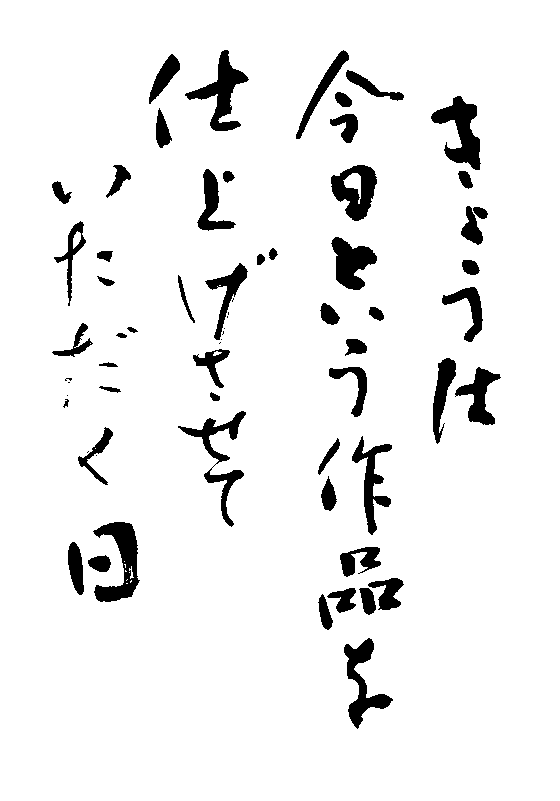 きょうは
今日という作品を
仕上げさせて
いただく日